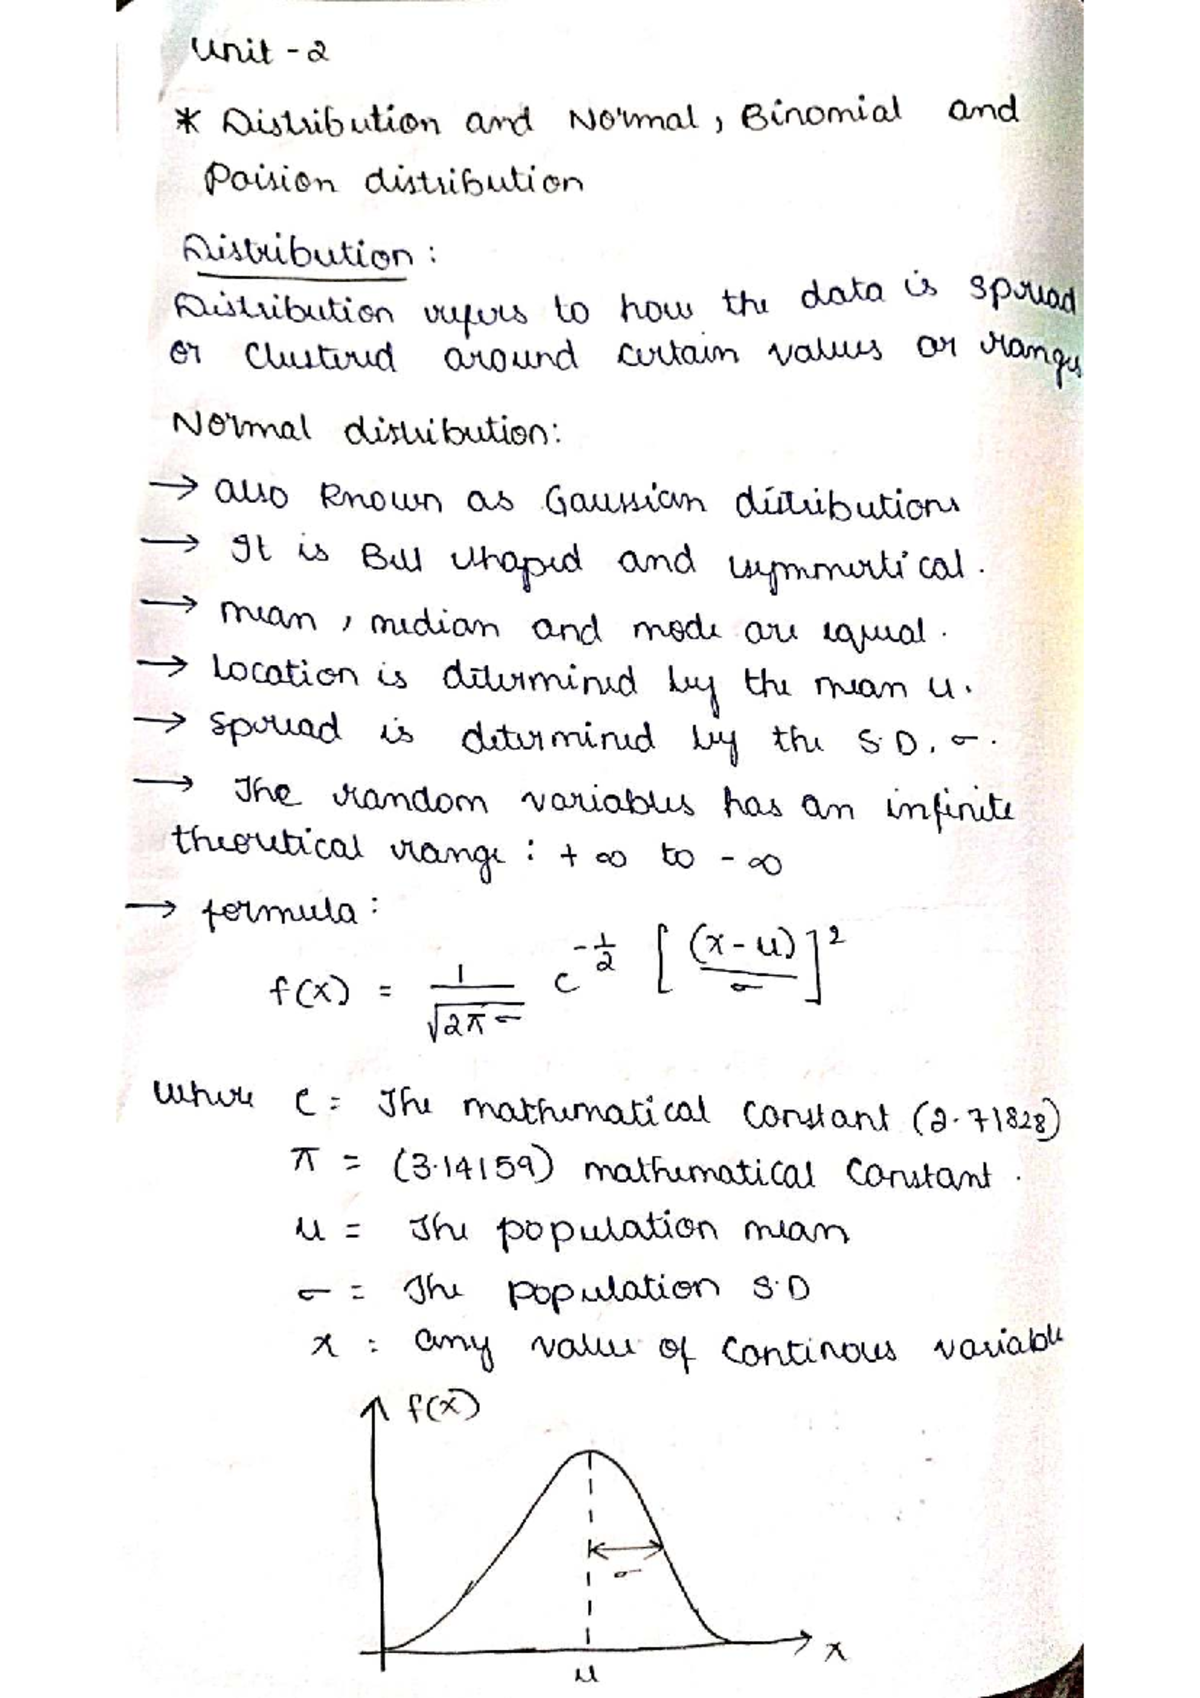 Unit - 2
* Distribution and Normal, Binomial and
Poision distribution
Distribution :
Distribution refers to how the data is spread
or Clustered around certain values or ranges
Normal distribution:
→ also known as Gaussian distributions
→ It is Bell shaped and symmertical.
→ mean, median and mode are equal.
→ Location is determined by the mean u.
→ spread is determined by the S.D. σ.
→ The random variables has an infinite
theoretical range : + ∞ to - ∞
→ formula :
f(x) = 1/√2πσ e^-1/2 [(x-u)/σ]^2
Where e = The mathematical constant (2.71828)
π = (3.14159) mathematical Constant.
u = The population mean
σ = The population S.D
x : any value of Continous variable
f(x)
σ
x
u